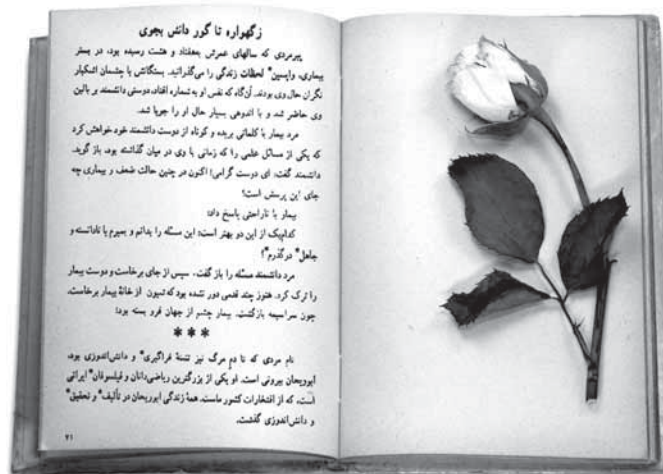 زگهواره تا گور دانش بجوی
پیرمردی که سالهای عمرش به‌هفتاد و هشت رسیده بود، در بستر
بیماری، واپسین* لحظات زندگی را می‌گذرانید. بستگانش با چشمان اشکبار
نگران حال وی بودند. آن‌گاه که نفس او به‌شماره افتاد، دوستی دانشمند بر بالین
وی حاضر شد و با اندوهی بسیار حال او را جویا شد.
مرد بیمار با کلماتی بریده و کوتاه از دوست دانشمند خود خواهش کرد
که یکی از مسائل علمی را که زمانی با وی در میان گذاشته بود، باز گوید.
دانشمند گفت: ای دوست گرامی! اکنون در چنین حالت ضعف و بیماری چه
جای این پرسش است؟
بیمار با ناراحتی پاسخ داد:
کدام‌یک از این دو بهتر است: این مسئله را بدانم و بمیرم یا نادانسته و
جاهل* درگذرم*؟
مرد دانشمند مسئله را باز گفت. سپس از جای برخاست و دوست بیمار
را ترک کرد. هنوز چند قدمی دور نشده بود که شیون از خانهٔ بیمار برخاست.
چون سراسیمه بازگشت، بیمار چشم از جهان فرو بسته بود!
***
نام مردی که تا دم مرگ نیز تشنهٔ فراگیری* و دانش‌اندوزی بود،
ابوریحان بیرونی است. او یکی از بزرگترین ریاضی‌دانان و فیلسوفان* ایرانی
است، که از افتخارات کشور ماست. همهٔ زندگی ابوریحان در تألیف* و تحقیق*
و دانش‌اندوزی گذشت.
۷۱